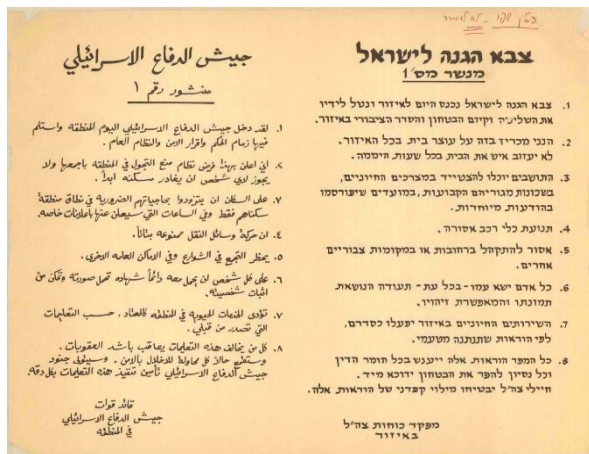 צבא הגנה לישראל
מנשר מס' 1
1. צבא הגנה לישראל נכנס היום לאיזור ונטל לידיו
את השליטה וקיום הבטחון והסדר הציבורי באיזור.
2. הנני מכריז בזה על עוצר בית. בכל האיזור.
לא יעזוב איש את הבית בכל שעות היממה.
3. התושבים יוכלו להצטייד במצרכים החיוניים,
בשכונות מגוריהם הקבועות, במועדים שיפורסמו
בהודעות מיוחדות.
4. תנועת כלי רכב אסורה.
5. אסור להתקהל ברחובות או במקומות צבוריים
אחרים.
6. כל אדם ישא עמו - בכל עת - תעודה הנושאת
תמונתו והמאפשרת זיהויו.
7. השירותים החיוניים באיזור יפעלו כסדרם,
לפי הוראות שתנתנה מטעמי.
8. כל המפר הוראות אלה ייענש בכל חומר הדין
וכל נסיון להפר את הבטחון ידוכא מיד.
חיילי צה"ל יבטיחו מילוי קפדני של הוראות אלה.
מפקד כוחות צה"ל
באיזור
جيش الدفاع الاسرائيلي
منشور رقم ١
١. لقد دخل جيش الدفاع الاسرائيلي اليوم المنطقه واستلم
فيها زمام الحكم واقرار الامن والنظام العام.
٢. اني اعلن بهذا فرض نظام منع التجول في المنطقه باجمعها ولا
يجوز لاي شخص ان يغادر سكنه ابداً.
٧. على السكان ان يتزودوا بحاجياتهم الضروريه في نطاق منطقة
سكناهم فقط وفي الساعات التي سيعلن عنها باعلانات خاصه.
٤. ان حركة وسائل النقل ممنوعه بتاتاً.
٥. يحظر التجمع في الشوارع وفي الاماكن العامه الاخرى.
٦. على كل شخص ان يحمل معه دائماً شهاده تحمل صورته وتمكن من
اثبات شخصيته.
٧. تؤدى الخدمات الحيويه في المنطقه كالمعتاد، حسب التعليمات
التي تصدر من قبلي.
٨. كل من يخالف هذه التعليمات يعاقب باشد العقوبات.
كل محاوله للاخلال بالامن. وسيتولى جنود
جيش الدفاع الاسرائيلي تأمين تنفيذ هذه التعليمات بكل دقه.
قائد قوات
جيش الدفاع الاسرائيلي
في المنطقه